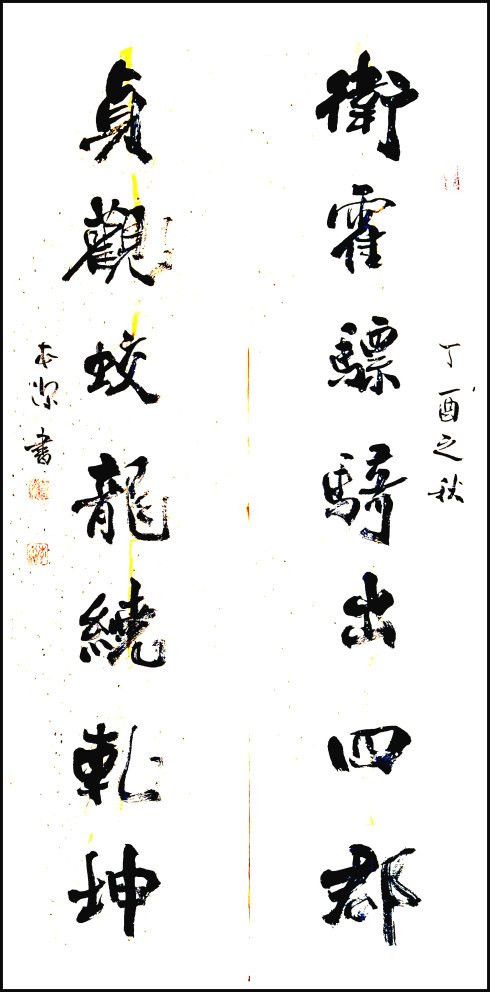 丁酉之秋
衛霍驃騎出四郡
貞觀蛟龍繞乾坤
本潔書